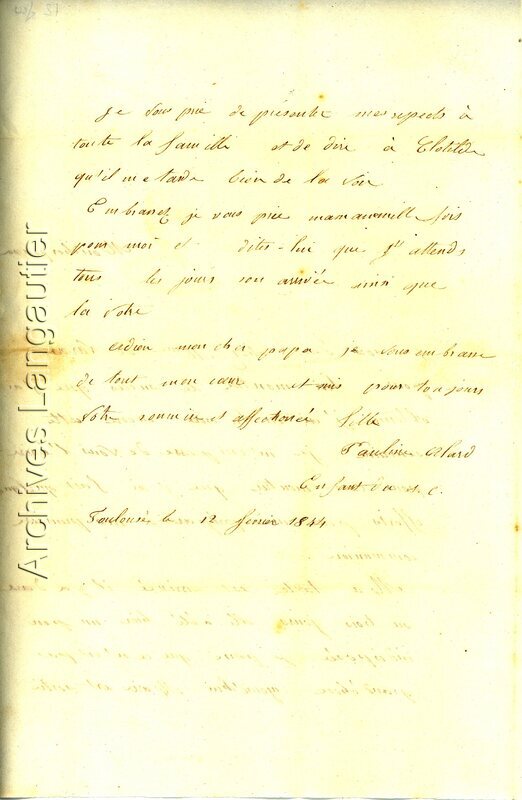 je vous prie de présenter mes respects à
toute la famille et de dire à Clotilde
qu'il me tarde bien de la voir
Embrassez je vous prie maman mille fois
pour moi et dites-lui que j'attends
tous les jours son arrivée ainsi que
la votre
adieu mon cher papa je vous embrasse
de tout mon cœur et suis pour toujours
Votre soumise et affectionnée fille
Pauline Alard
Enfant du s. c.
Toulouse le 12 février 1844
Archives Langautier